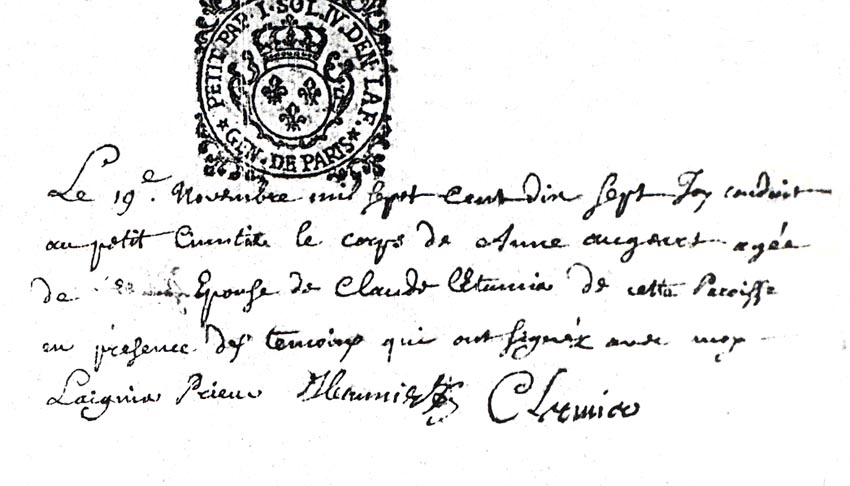 PETIT PAP. I. SOL. IV. DEN. LA. F.
GEN. DE PARIS
Le 19e. Novembre mil sept cent dix sept Jay conduit
au petit Cimetiere le corps de Anne augeart agée
de Epouse de Claude de cette Paroisse
en présence des temoins qui ont signéz avec moy
Prieur